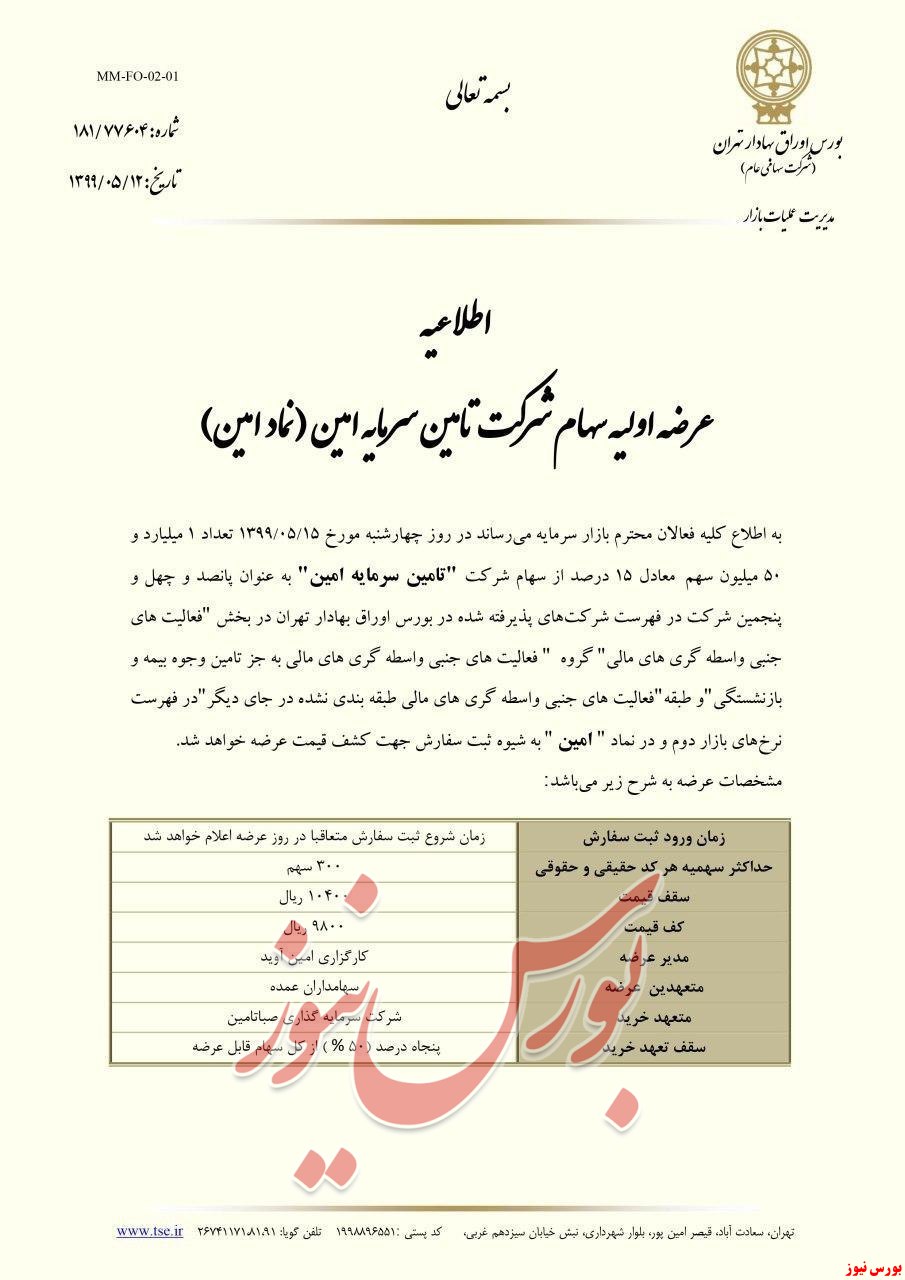 بورس اوراق بهادار تهران
(شرکت سهامی عام)
مدیریت عملیات بازار
بسمه تعالی
MM-FO-02-01
شماره: ۱۸۱/۷۷۶۰۴
تاریخ: ۱۳۹۹/۰۵/۱۲
اطلاعیه
عرضه اولیه سهام شرکت تامین سرمایه امین (نماد امین)
به اطلاع کلیه فعالان محترم بازار سرمایه می‌رساند در روز چهارشنبه مورخ ۱۳۹۹/۰۵/۱۵ تعداد ۱ میلیارد و
۵۰ میلیون سهم معادل ۱۵ درصد از سهام شرکت "تامین سرمایه امین" به عنوان پانصد و چهل و
پنجمین شرکت در فهرست شرکت‌های پذیرفته شده در بورس اوراق بهادار تهران در بخش "فعالیت های
جنبی واسطه گری های مالی" گروه " فعالیت های جنبی واسطه گری های مالی به جز تامین وجوه بیمه و
بازنشستگی"و طبقه"فعالیت های جنبی واسطه گری های مالی طبقه بندی نشده در جای دیگر"در فهرست
نرخ‌های بازار دوم و در نماد " امین " به شیوه ثبت سفارش جهت کشف قیمت عرضه خواهد شد.
مشخصات عرضه به شرح زیر می‌باشد:
زمان ورود ثبت سفارش زمان شروع ثبت سفارش متعاقبا در روز عرضه اعلام خواهد شد
حداکثر سهمیه هر کد حقیقی و حقوقی ۳۰۰ سهم
سقف قیمت ۱۰۴۰۰ ریال
کف قیمت ۹۸۰۰ ریال
مدیر عرضه کارگزاری امین آوید
متعهدین عرضه سهامداران عمده
متعهد خرید شرکت سرمایه گذاری صباتامین
سقف تعهد خرید پنجاه درصد (۵۰ %) از کل سهام قابل عرضه
بورس نیوز
تهران، سعادت آباد، قیصر امین پور، بلوار شهرداری، نبش خیابان سیزدهم غربی، کد پستی :۱۹۹۸۸۹۶۵۵۱ تلفن گویا: ۲۶۷۴۱۱۷۱،۸۱،۹۱ www.tse.ir
بورس نیوز